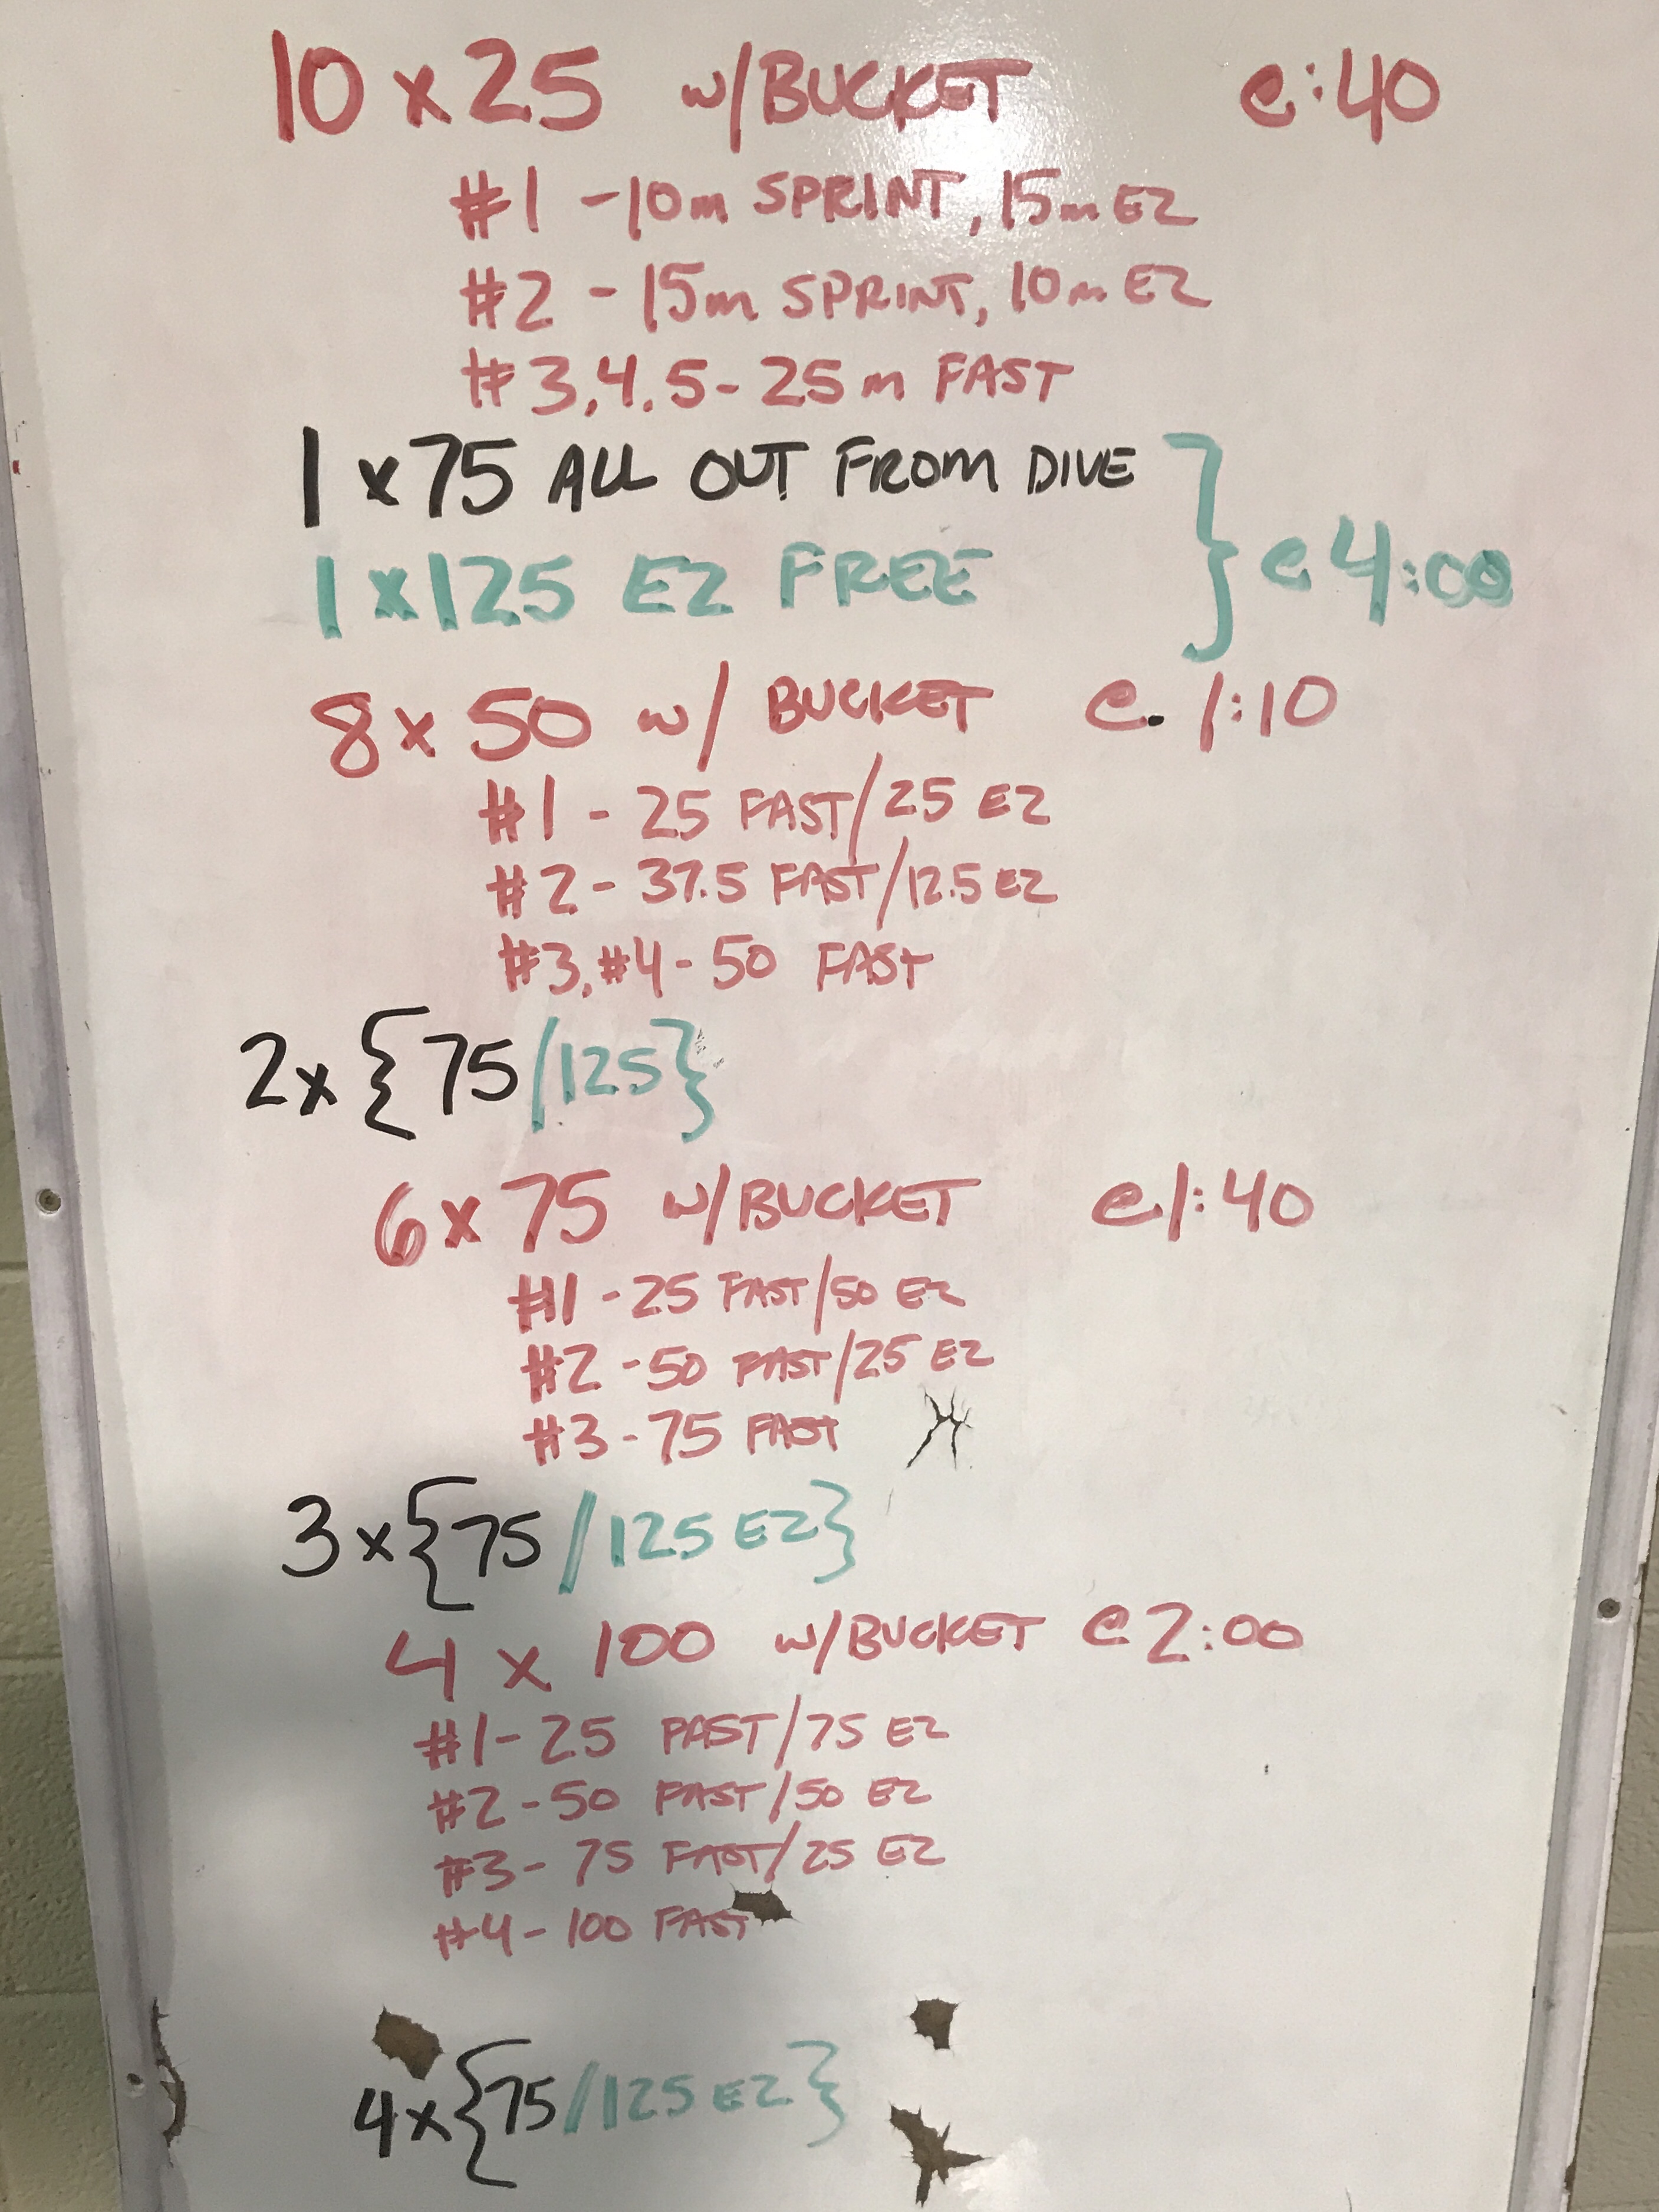 10 x 25 w/BUCKET @:40
#1 - 10m SPRINT, 15m EZ
#2 - 15m SPRINT, 10m EZ
#3,4.5 - 25m FAST
1 x 75 ALL OUT FROM DIVE
1 x 125 EZ FREE } @ 4:00
8 x 50 w/ BUCKET @ 1:10
#1 - 25 FAST/25 EZ
#2 - 37.5 FAST/12.5 EZ
#3, #4 - 50 FAST
2 x {75/125}
6 x 75 w/BUCKET @ 1:40
#1 - 25 FAST/50 EZ
#2 - 50 FAST/25 EZ
#3 - 75 FAST
3 x {75/125 EZ}
4 x 100 w/BUCKET @ 2:00
#1 - 25 FAST/75 EZ
#2 - 50 FAST/50 EZ
#3 - 75 FAST/25 EZ
#4 - 100 FAST
4 x {75/125 EZ}